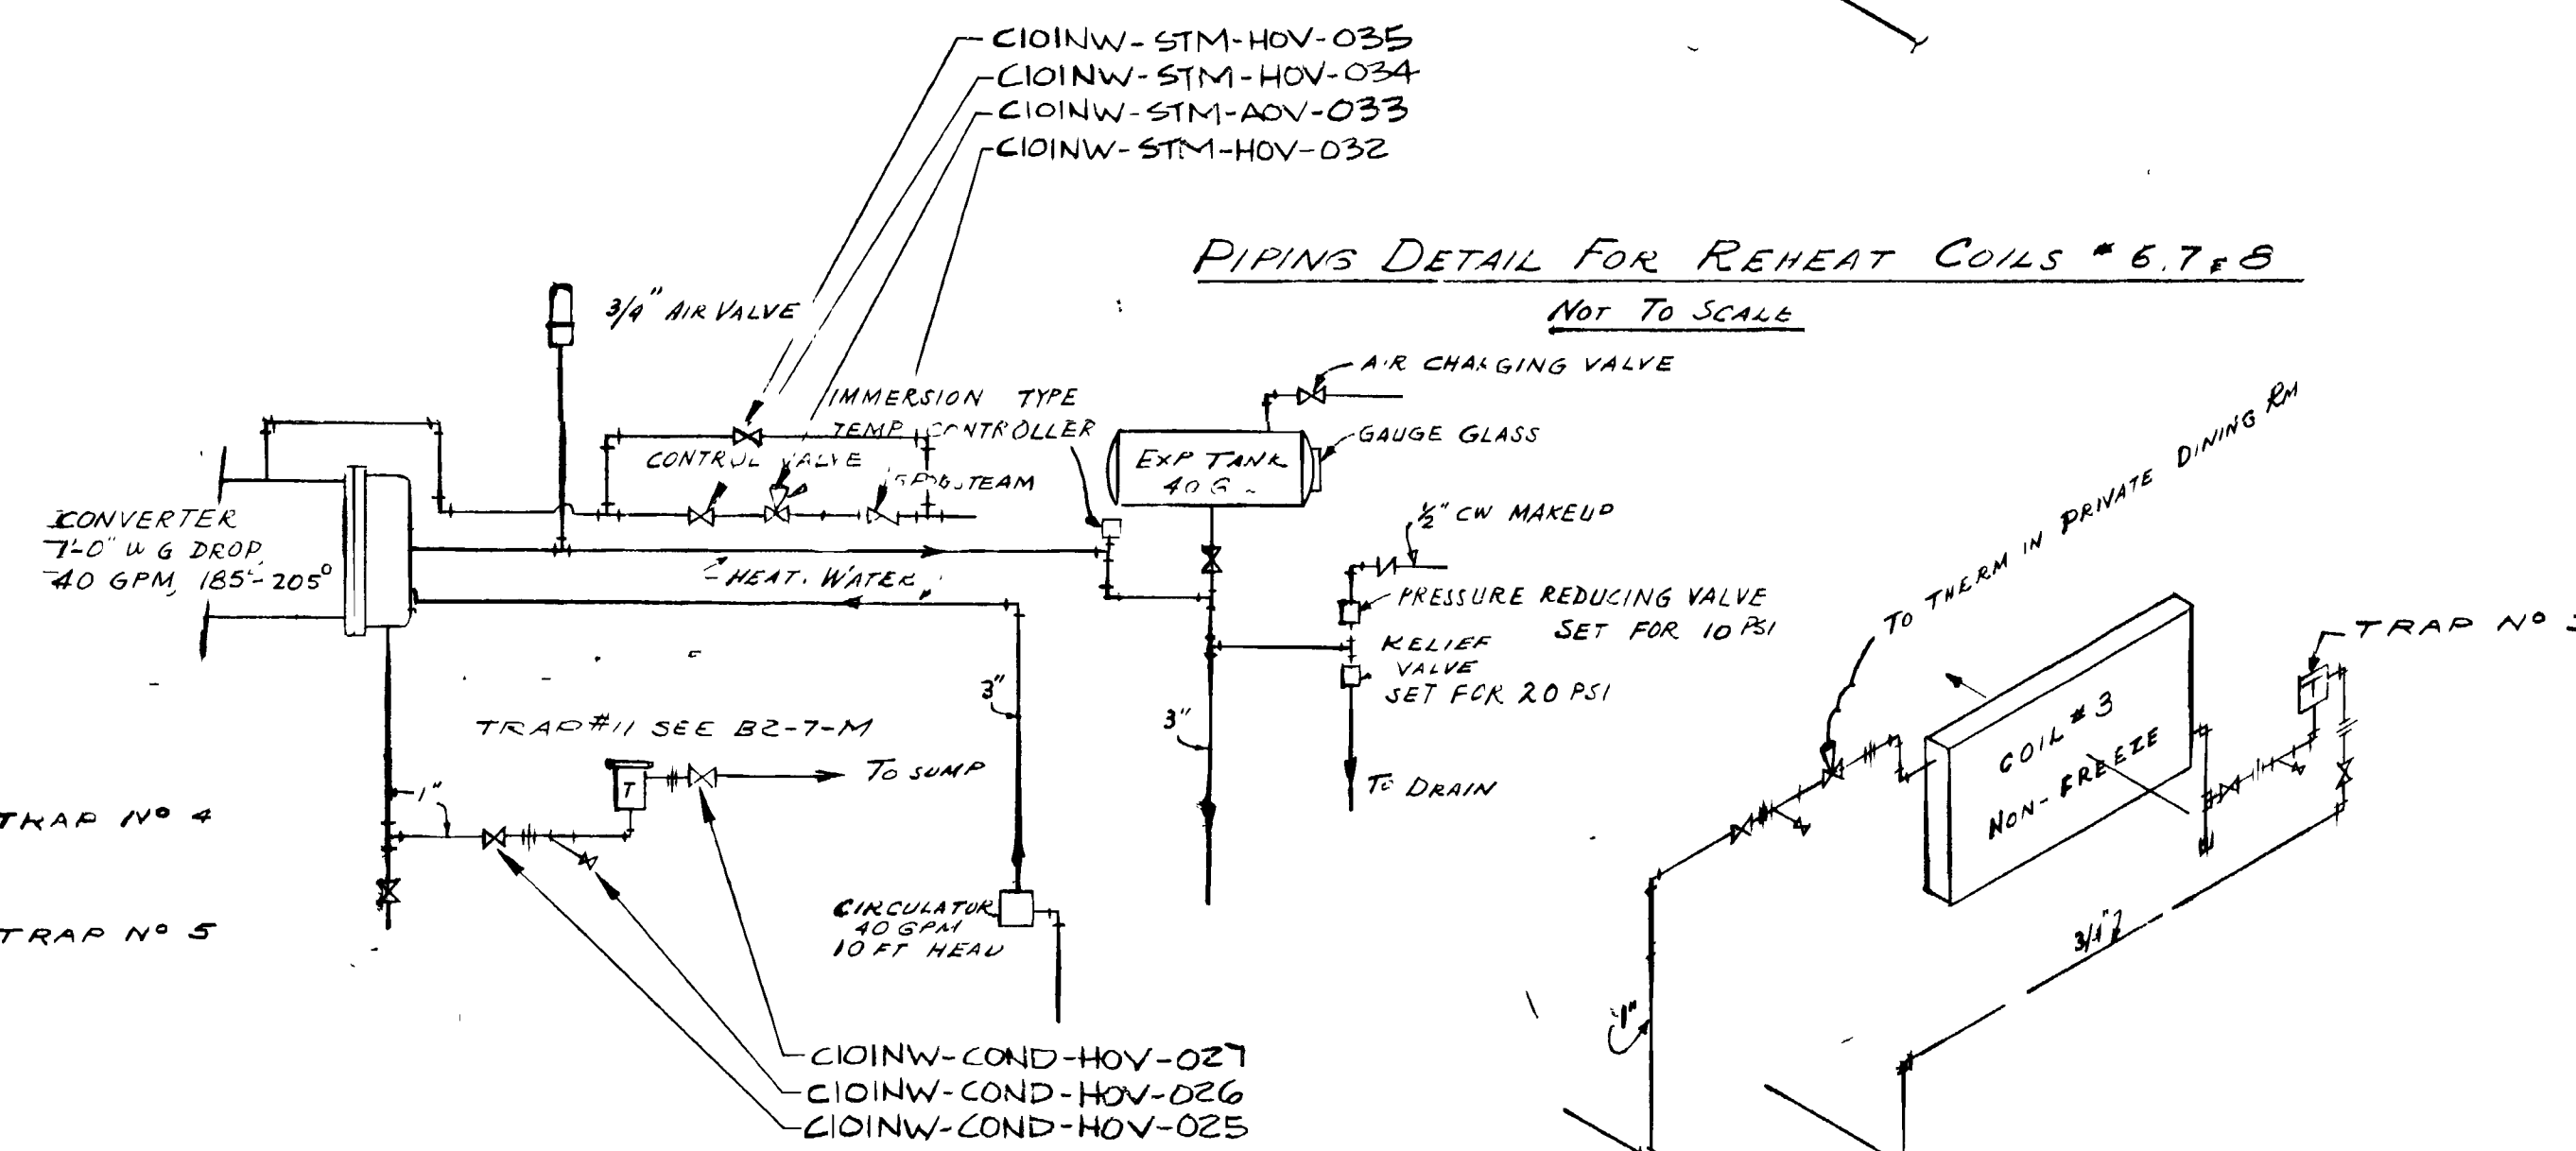 C101NW-STM-HOV-035
C101NW-STM-HOV-034
C101NW-STM-AOV-033
C101NW-STM-HOV-032
PIPING DETAIL FOR REHEAT COILS # 6.7 & 8
NOT TO SCALE
3/4" AIR VALVE
AIR CHARGING VALVE
IMMERSION TYPE
TEMP CONTROLLER
GAUGE GLASS
CONTROL VALVE
STEAM
EXP TANK
40 G
CONVERTER
7'-0" W G DROP
40 GPM, 185°-205°
HEAT. WATER
1/2" CW MAKEUP
PRESSURE REDUCING VALVE
SET FOR 10 PSI
RELIEF
VALVE
SET FOR 20 PSI
TO THERM IN PRIVATE DINING RM
TRAP No
COIL # 3
NON-FREEZE
3"
3"
TRAP #11 SEE B2-7-M
T
TO SUMP
T
TO DRAIN
1"
TRAP No 4
TRAP No 5
CIRCULATOR
40 GPM
10 FT HEAD
3/4"
1"
C101NW-COND-HOV-027
C101NW-COND-HOV-026
C101NW-COND-HOV-025